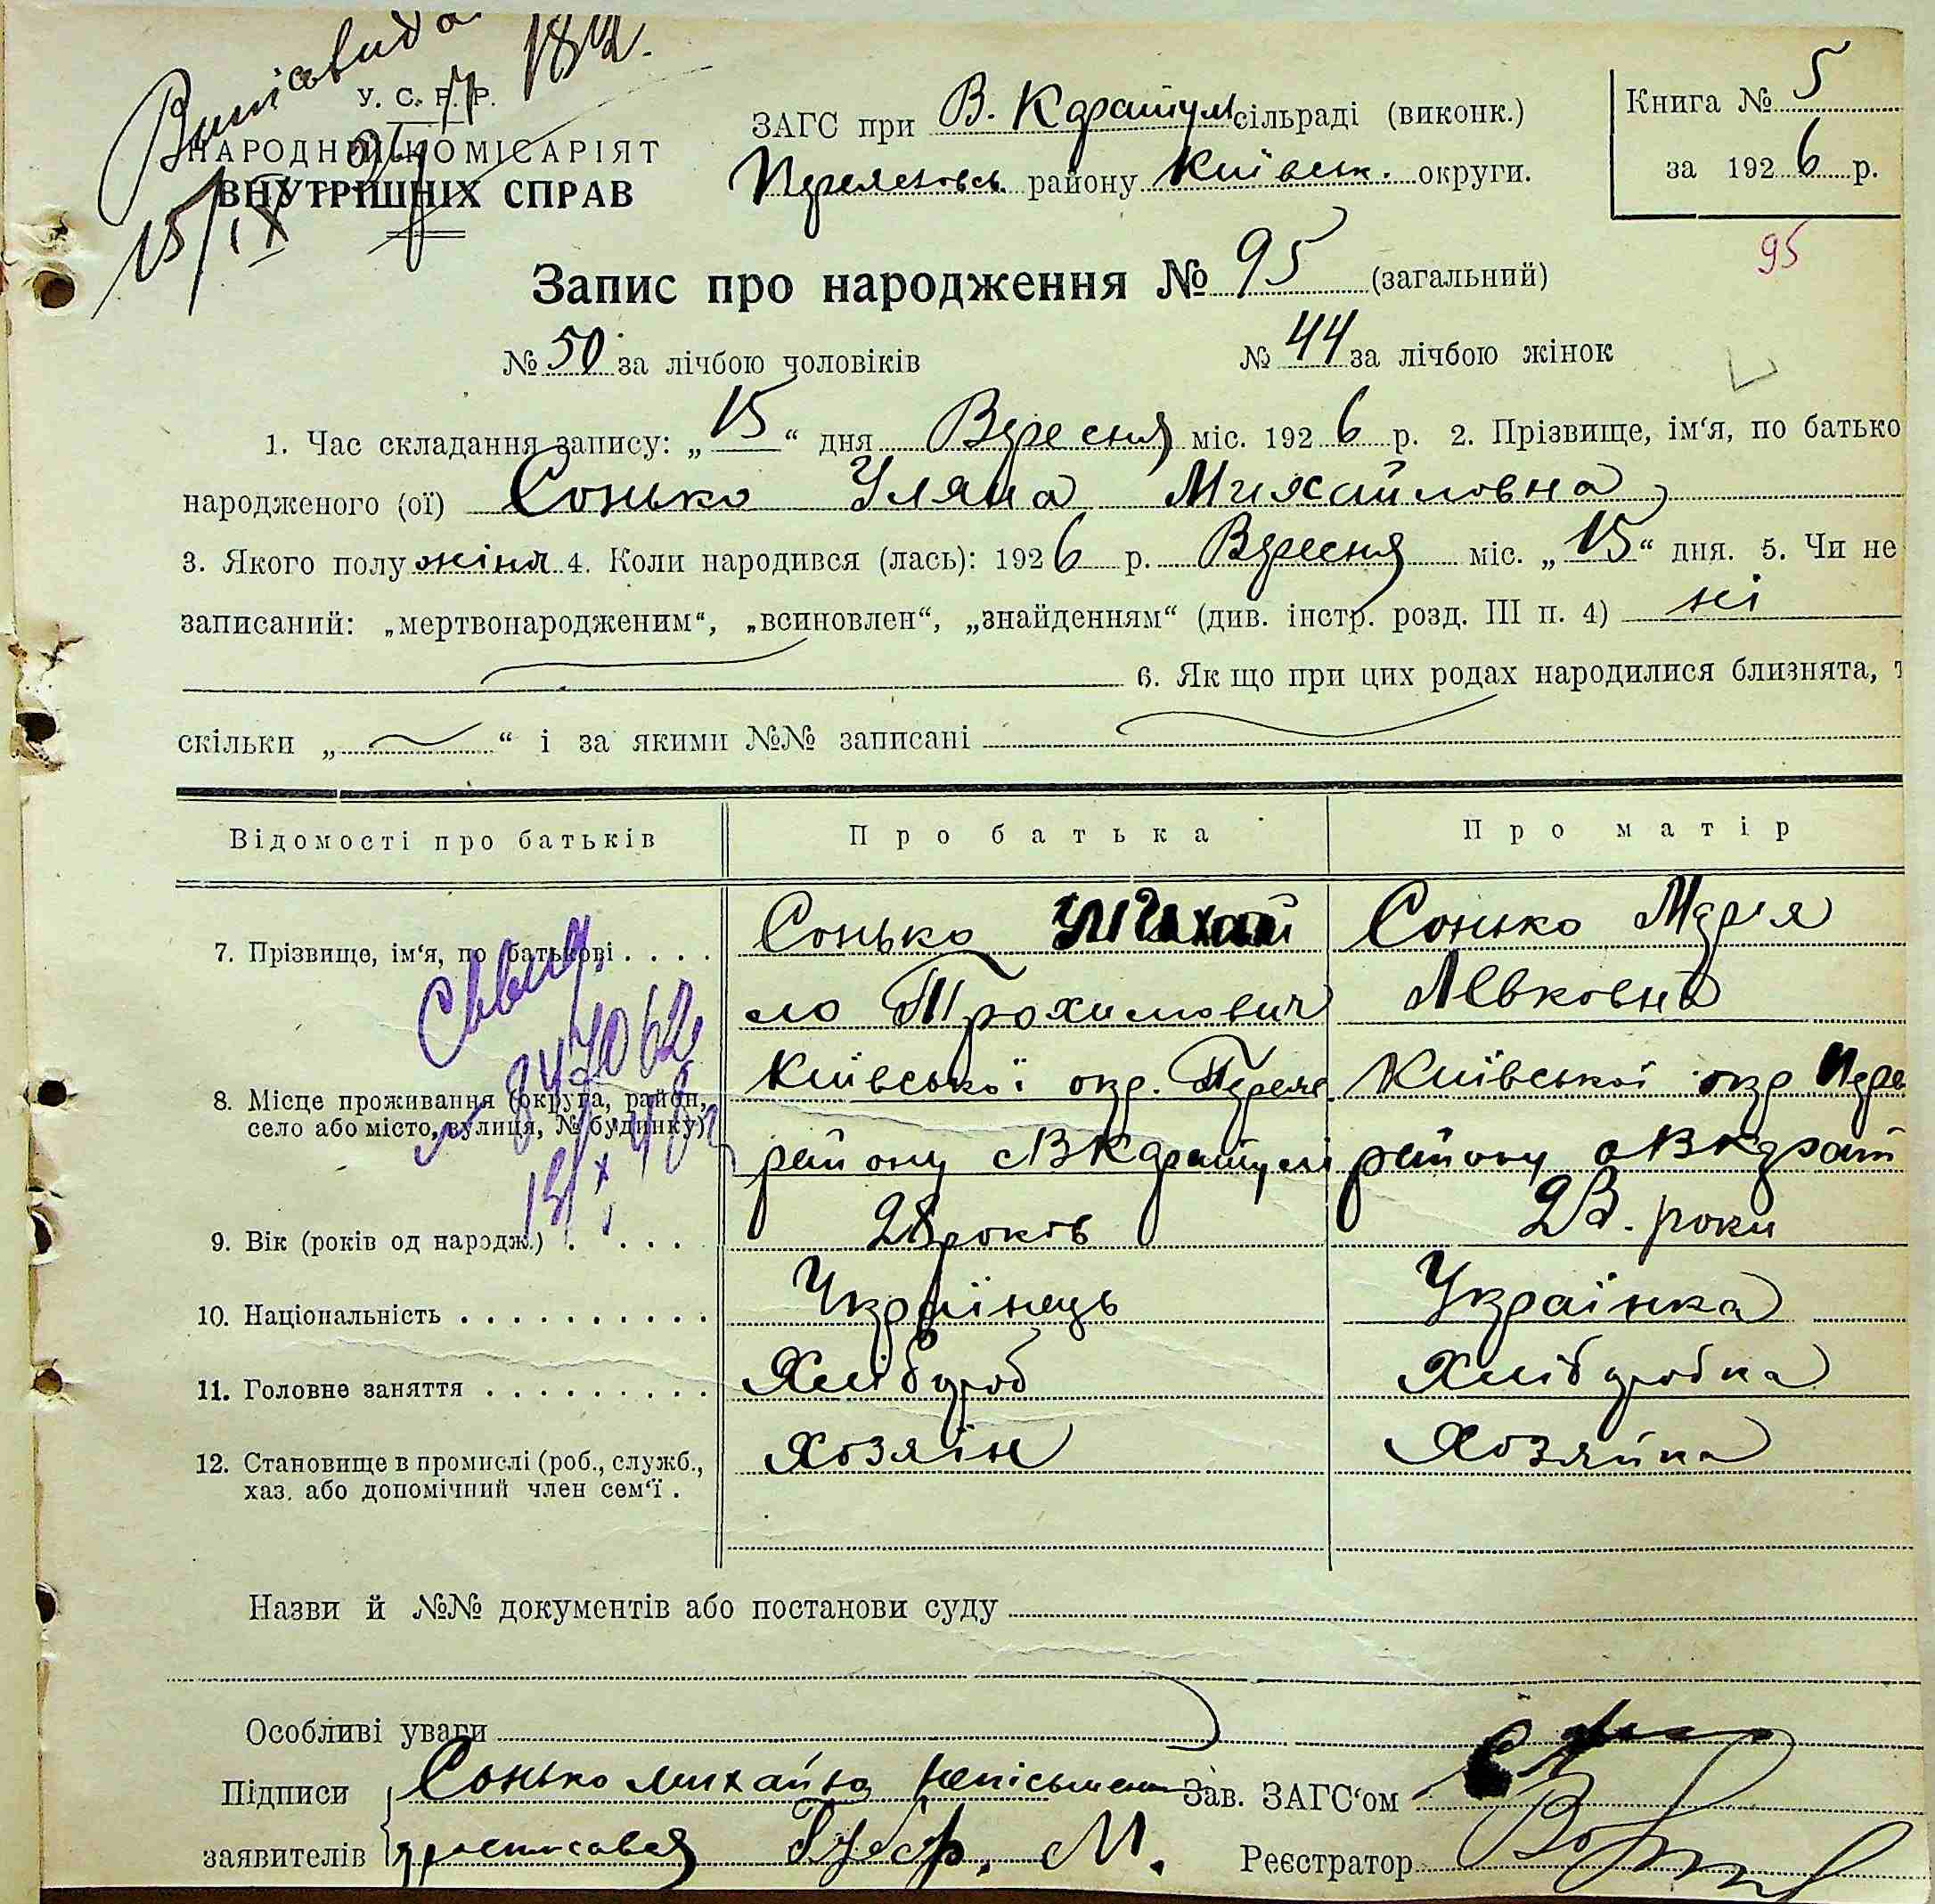 У. С. Р. Р.
НАРОДНИЙ КОМІСАРІЯТ
ВНУТРІШНІХ СПРАВ
15/IX
ЗАГС при В. Каратул сільраді (виконк.)
району Київськ. округи.
Книга № 5
за 1926 р.
95
Запис про народження № 95 (загальний)
№ 50 за лічбою чоловіків № 44 за лічбою жінок
1. Час складання запису: „15“ дня Вересня міс. 1926 р. 2. Прізвище, ім‘я, по батько
народженого (ої) Сонько Уляна Михайловна
3. Якого полу жіня 4. Коли народився (лась): 1926 р. Вересня міс. „15“ дня. 5. Чи не
записаний: „мертвонародженим“, „всиновлен“, „знайденням“ (див. інстр. розд. III п. 4) ні
6. Як що при цих родах народилися близнята, т
скільки „ “ і за якими №№ записані
Відомості про батьків Про батька Про матір
7. Прізвище, ім‘я, по батькові . . . . Сонько Михай Сонько Марія
ло Трохимович Левковна
8. Місце проживання (округа, район, Київської окр. Перея Київської окр Пере
село або місто, вулиця, № будинку) району с В Каратулі району с В Карат
9. Вік (років од народж.) . . . . . 28 років 23. роки
10. Національність . . . . . . . . . . Українець Українка
11. Головне заняття . . . . . . . . . Хлібороб Хліборобка
12. Становище в промислі (роб., служб., Хозяін Хозяйка
хаз. або допомічний член сем‘ї .
Назви й №№ документів або постанови суду
Особливі уваги
Підписи Сонько Михайло неписьмен Зав. ЗАГС‘ом
заявителів М. Реєстратор